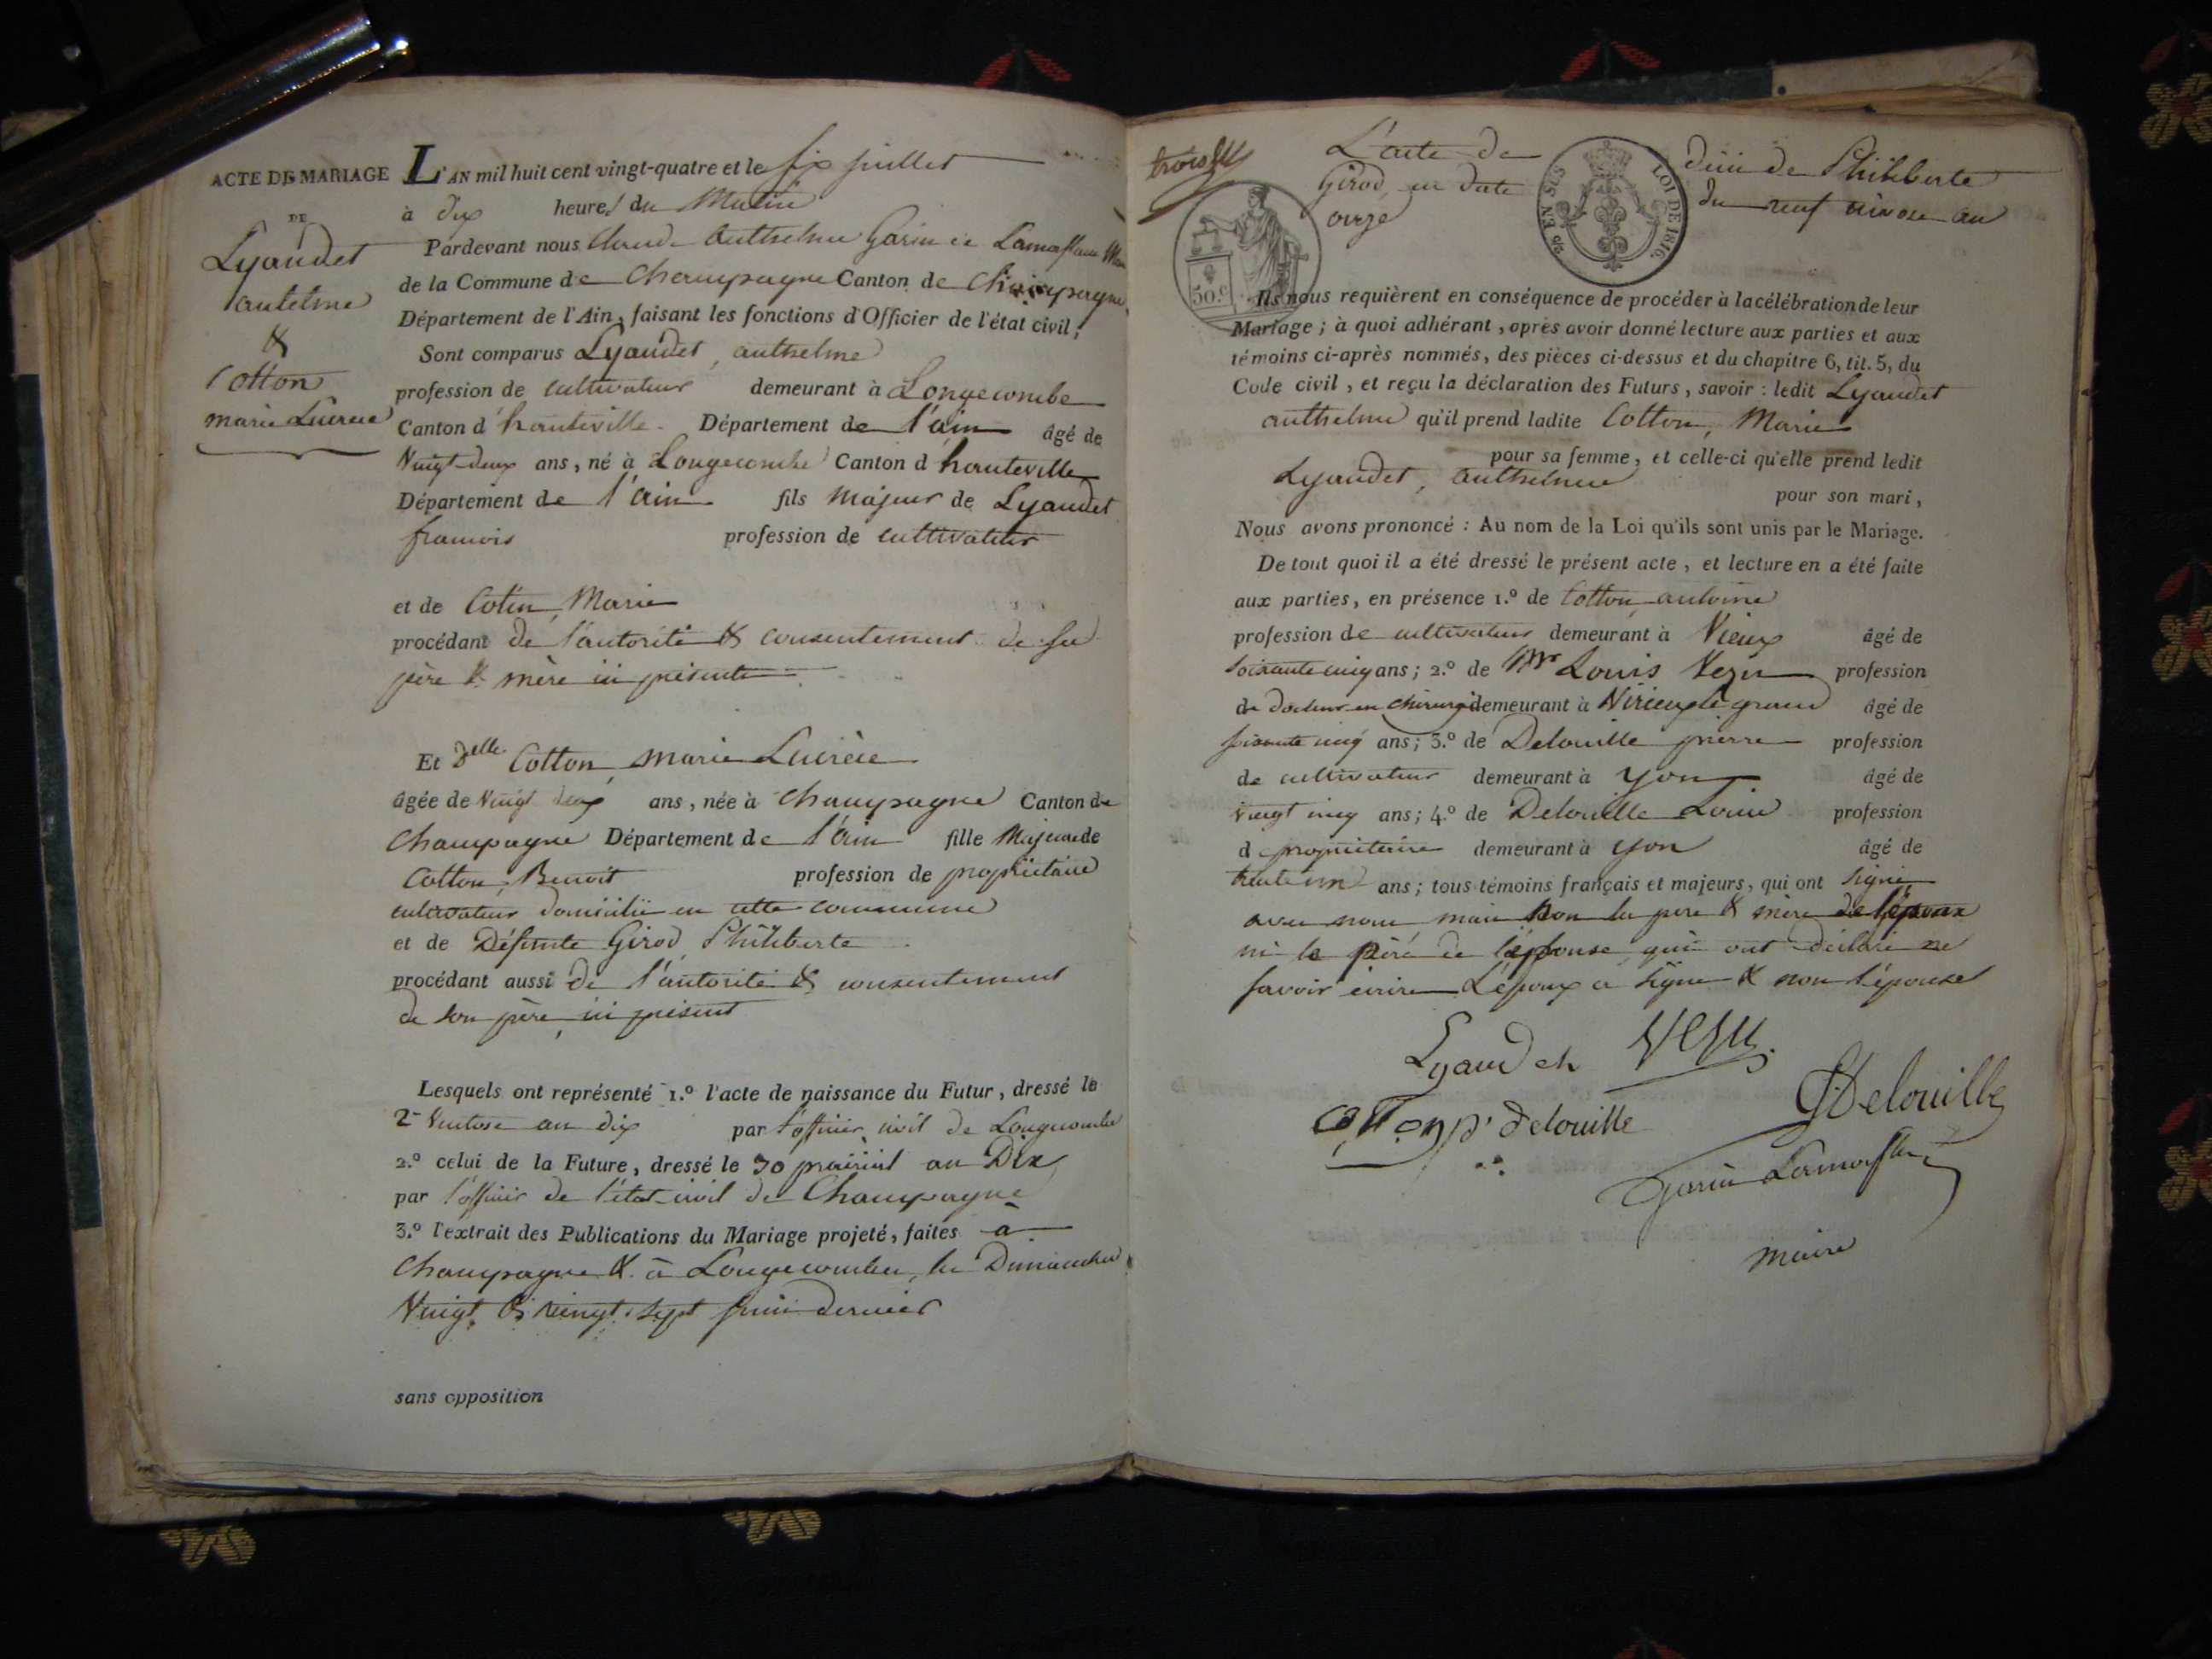 ACTE DE MARIAGE
DE
Lyaudet
antelme
&
Cotton
marie Lucrece
L'AN mil huit cent vingt-quatre et le six juillet
à dix heures du Matin
Pardevant nous Claude Anthelme Garin de Lamorflan Maire
de la Commune de Champagne Canton de Champagne
Département de l'Ain, faisant les fonctions d'Officier de l'état civil;
Sont comparus Lyaudet, anthelme
profession de cultivateur demeurant à Longecombe
Canton d'hauteville Département de l'ain âgé de
Vingt-deux ans, né à Longecombe Canton d'hauteville
Département de l'Ain fils Majeur de Lyaudet
francois profession de cultivateur
et de Cotin, Marie
procédant de l'autorité & consentement de ses
père & mère ici présents
Et dlle Cotton, marie Lucrèce
âgée de Vingt deux ans, née à Champagne Canton de
Champagne Département de l'ain fille Majeure de
Cotton, Benoit profession de propriétaire
cultivateur domicilié en cette commune
et de Défunte Girod, Philiberte
procédant aussi de l'autorité & consentement
de son père ici présent
Lesquels ont représenté 1.º l'acte de naissance du Futur, dressé le
2 Ventose an dix par l'officier civil de Longecombe
2.º celui de la Future, dressé le 30 prairial an Dix
par l'officier de l'état-civil de Champagne
3.º l'extrait des Publications du Mariage projeté, faites à
Champagne & à Longecombe, les Dimanches
Vingt & vingt-sept juin dernier
sans opposition
L'acte de décès de Philiberte
Girod en date du neuf nivose an
onze
50.c
EN SUS
LOI DE 1816.
Ils nous requièrent en conséquence de procéder à la célébration de leur
Mariage; à quoi adhérant, après avoir donné lecture aux parties et aux
témoins ci-après nommés, des pièces ci-dessus et du chapitre 6, tit. 5, du
Code civil, et reçu la déclaration des Futurs, savoir: ledit Lyaudet
anthelme qu'il prend ladite Cotton, Marie
pour sa femme, et celle-ci qu'elle prend ledit
Lyaudet, anthelme
pour son mari,
Nous avons prononcé: Au nom de la Loi qu'ils sont unis par le Mariage.
De tout quoi il a été dressé le présent acte, et lecture en a été faite
aux parties, en présence 1.º de Cotton, antoine
profession de cultivateur demeurant à Vieux âgé de
soixante cinq ans; 2.º de Mr Louis Vezu profession
de docteur en chirurgie demeurant à Virieux le grand âgé de
soixante cinq ans; 3.º de Delouille pierre profession
de cultivateur demeurant à Yon âgé de
vingt cinq ans; 4.º de Delouille Louis profession
de propriétaire demeurant à Yon âgé de
trente un ans; tous témoins français et majeurs, qui ont signé
avec nous, mais non les pere & mère de l'époux
ni le père de l'épouse qui ont déclaré ne
savoir écrire. L'époux a signé & non l'épouse
Lyaudet Vezu
Cotton p. delouille Delouille
Garin Lamorflan
maire